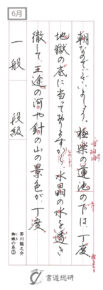 6月
朝なのでございましょう。極楽の蓮池の下は丁度
地獄の底に当って居りますから、水晶の水を透き
徹して三途の河や針の山の景色が丁度
一般　段級
芥川龍之介
蜘蛛の糸
書道総研